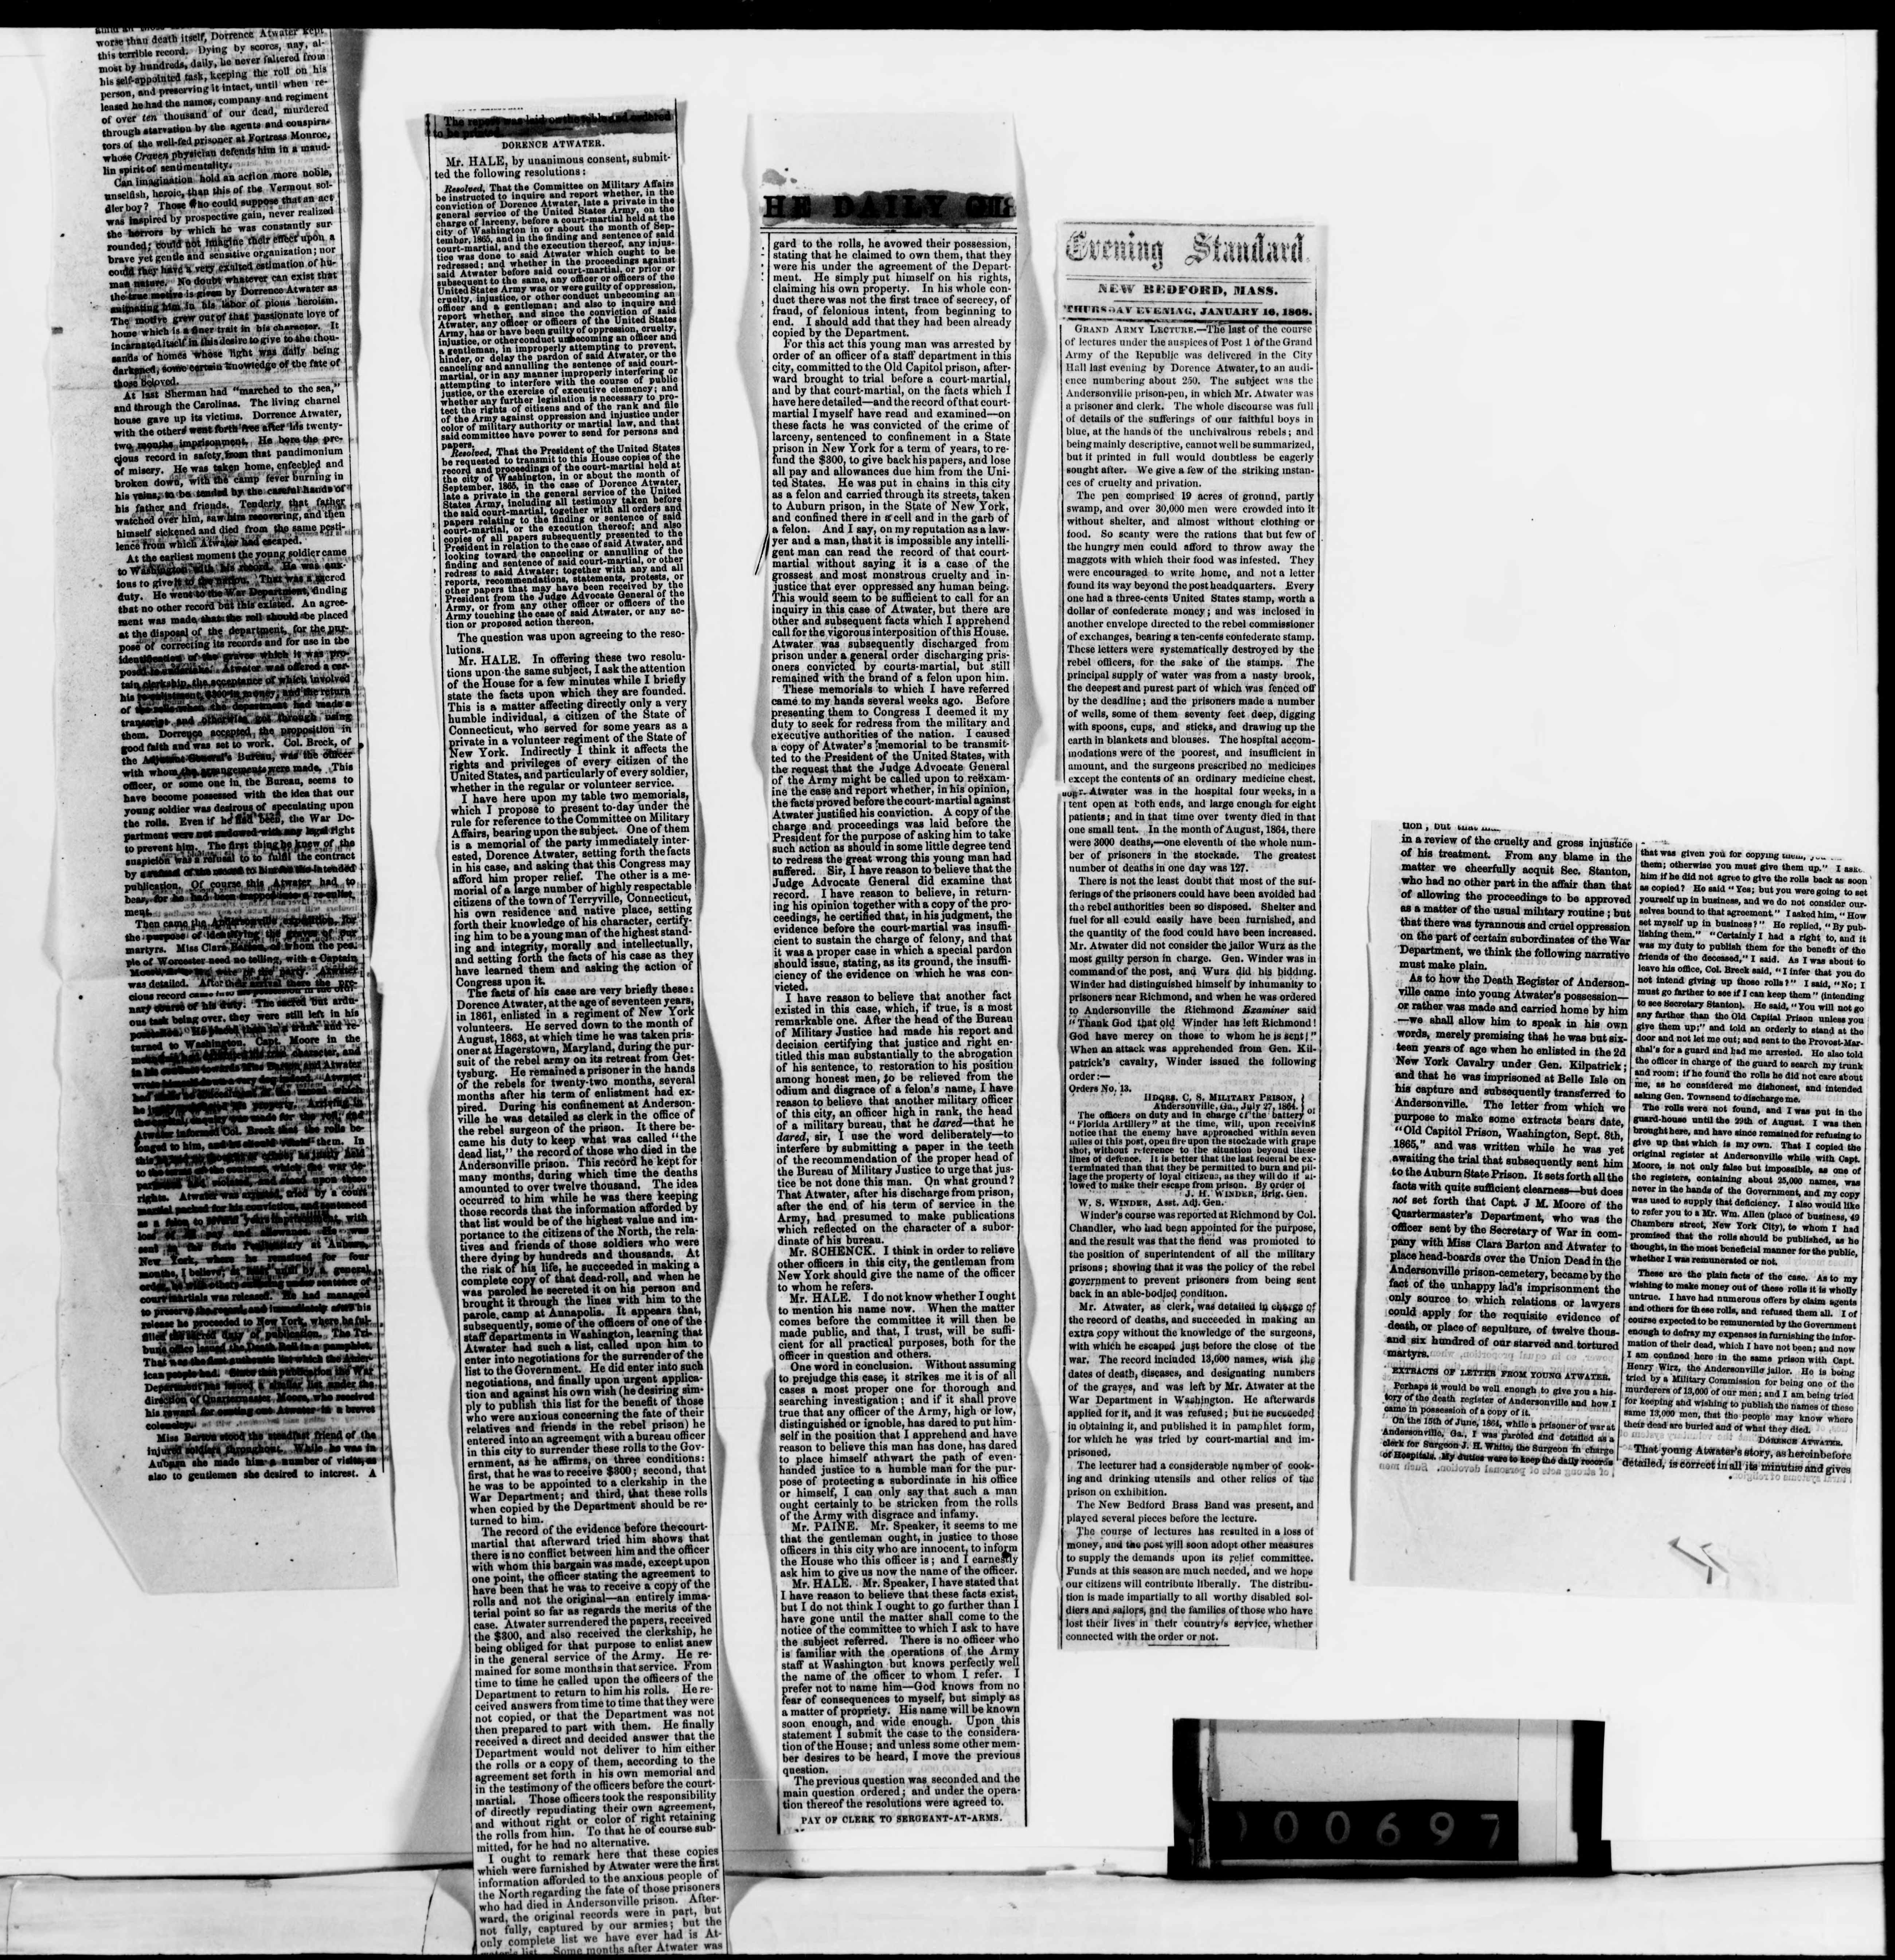 worse than death itself, Dorrence Atwater kept
this terrible record. Dying by scores, nay, al-
most by hundreds, daily, he never faltered from
his self-appointed task, keeping the roll on his
person, and preserving it intact, until when re-
leased he had the names, company and regiment
of over ten thousand of our dead, murdered
through starvation by the agents and conspira-
tors of the well-fed prisoner at Fortress Monroe,
whose Craven physician defends him in a maud-
lin spirit of sentimentality.
Can imagination hold an action more noble,
unselfish, heroic, than this of the Vermont sol-
dier boy? Those who could suppose that an act
was inspired by prospective gain, never realized
the horrors by which he was constantly sur-
rounded; could not imagine their effect upon a
brave yet gentle and sensitive organization; nor
could they have a very exalted estimation of hu-
man nature. No doubt whatever can exist that
the true motive is given by Dorrence Atwater as
animating him in his labor of pious heroism.
The motive grew out of that passionate love of
home which is a finer trait in his character. It
incarnated itself in this desire to give to the thou-
sands of homes whose light was daily being
darkened, some certain knowledge of the fate of
those beloved.
At last Sherman had "marched to the sea,"
and through the Carolinas. The living charnel
house gave up its victims. Dorrence Atwater,
with the others went forth free after his twenty-
two months imprisonment. He bore the pre-
cious record in safety from that pandimonium
of misery. He was taken home, enfeebled and
broken down, with the camp fever burning in
his veins, to be tended by the careful hands of
his father and friends. Tenderly that father
watched over him, saw him recovering, and then
himself sickened and died from the same pesti-
lence from which Atwater had escaped.
At the earliest moment the young soldier came
to Washington with his record. He was anx-
ious to give it to the nation. That was a sacred
duty. He went to the War Department, finding
that no other record but this existed. An agree-
ment was made that the roll should be placed
at the disposal of the department, for the pur-
pose of correcting its records and for use in the
identification of the graves which it was pro-
posed to undertake. Atwater was offered a cer-
tain clerkship, the acceptance of which involved
his re-enlistment, $300 in money, and the return
of the rolls when the department had made a
transcript and otherwise got through using
them. Dorrence accepted the proposition in
good faith and was set to work. Col. Breck, of
the Adjutant-General's Bureau, was the officer
with whom the arrangements were made. This
officer, or some one in the Bureau, seems to
have become possessed with the idea that our
young soldier was desirous of speculating upon
the rolls. Even if he had been, the War De-
partment were not endowed with any legal right
to prevent him. The first thing he knew of the
suspicion was a refusal to to fulfil the contract
by
publication. Of course this Atwater had to
bear, for he had been
ment.
Then came the Andersonville expedition, for
the purpose of identifying the graves of our
martyrs. Miss Clara Barton, of whom the peo-
ple of Worcester need no telling, with a Captain
Moore, Atwater
was detailed. After their arrival there the pre-
cious record came
nary course of his duty. The sacred but ardu-
ous task being over, they were still left in his
in a trunk and re-
turned to Washington. Capt. Moore in the
Atwater informed Col. Breck that the rolls be-
longed to him, them. In
rights. Atwater was arrested, tried by a court
martial packed for his conviction, and sentenced
as a felon to several years imprisonment, with
loss of all pay and allowance. He was
sent to the State Penitentiary at Auburn,
New York, for four
months, I believe, until by a general
order, others under sentence of
court martials was released. He had managed
to preserve the record, and immediately after his
release he proceeded to New York, where he ful-
filled the sacred duty of publication. The Tri-
bune office issued the Death Roll in a pamphlet.
That was the first authentic list which the Amer-
ican people had. Since that publication the War
Department has issued a similar list under the
direction of Quartermaster Moore, who received
his reward for carting out Atwater in a brevet
colonelcy.
Miss Barton stood the steadfast friend of the
injured soldiers throughout. While he was in
Auburn she made him a number of visits, as
also to gentlemen she desired to interest. A
The report was laid on the table and ordered
to be printed.
DORENCE ATWATER.
Mr. HALE, by unanimous consent, submit-
ted the following resolutions:
Resolved, That the Committee on Military Affairs
be instructed to inquire and report whether, in the
conviction of Dorence Atwater, late a private in the
general service of the United States Army, on the
charge of larceny, before a court-martial held at the
city of Washington in or about the month of Sep-
tember, 1865, and in the finding and sentence of said
court-martial, and the execution thereof, any injus-
tice was done to said Atwater which ought to be
redressed; and whether in the proceedings against
said Atwater before said court-martial, or prior or
subsequent to the same, any officer or officers of the
United States Army was or were guilty of oppression,
cruelty, injustice, or other conduct unbecoming an
officer and a gentleman; and also to inquire and
report whether, and since the conviction of said
Atwater, any officer or officers of the United States
Army, has or have been guilty of oppression, cruelty,
injustice, or other conduct unbecoming an officer and
a gentleman, in improperly attempting to prevent,
hinder, or delay the pardon of said Atwater, or the
canceling and annulling the sentence of said court-
martial, or in any manner improperly interfering or
attempting to interfere with the course of public
justice, or the exercise of executive clemency; and
whether any further legislation is necessary to pro-
tect the rights of citizens and of the rank and file
of the Army against oppression and injustice under
color of military authority or martial law, and that
said committee have power to send for persons and
papers.
Resolved, That the President of the United States
be requested to transmit to this House copies of the
record and proceedings of the court-martial held at
the city of Washington, in or about the month of
September, 1865, in the case of Dorence Atwater,
late a private in the general service of the United
States Army, including all testimony taken before
the said court-martial, together with all orders and
papers relating to the finding or sentence of said
court-martial, or the execution thereof; and also
copies of all papers subsequently presented to the
President in relation to the case of said Atwater, and
looking toward the canceling or annulling of the
finding and sentence of said court-martial, or other
redress to said Atwater; together with any and all
reports, recommendations, statements, protests, or
other papers that may have been received by the
President from the Judge Advocate General of the
Army, or from any other officer or officers of the
Army touching the case of said Atwater, or any ac-
tion or proposed action thereon.
The question was upon agreeing to the reso-
lutions.
Mr. HALE. In offering these two resolu-
tions upon the same subject, I ask the attention
of the House for a few minutes while I briefly
state the facts upon which they are founded.
This is a matter affecting directly only a very
humble individual, a citizen of the State of
Connecticut, who served for some years as a
private in a volunteer regiment of the State of
New York. Indirectly I think it affects the
rights and privileges of every citizen of the
United States, and particularly of every soldier,
whether in the regular or volunteer service.
I have here upon my table two memorials,
which I propose to present to-day under the
rule for reference to the Committee on Military
Affairs, bearing upon the subject. One of them
is a memorial of the party immediately inter-
ested, Dorence Atwater, setting forth the facts
in his case, and asking that this Congress may
afford him proper relief. The other is a me-
morial of a large number of highly respectable
citizens of the town of Terryville, Connecticut,
his own residence and native place, setting
forth their knowledge of his character, certify-
ing him to be a young man of the highest stand-
ing and integrity, morally and intellectually,
and setting forth the facts of his case as they
have learned them and asking the action of
Congress upon it.
The facts of his case are very briefly these:
Dorence Atwater, at the age of seventeen years,
in 1861, enlisted in a regiment of New York
volunteers. He served down to the month of
August, 1863, at which time he was taken pris-
oner at Hagerstown, Maryland, during the pur-
suit of the rebel army on its retreat from Get-
tysburg. He remained a prisoner in the hands
of the rebels for twenty-two months, several
months after his term of enlistment had ex-
pired. During his confinement at Anderson-
ville he was detailed as clerk in the office of
the rebel surgeon of the prison. It there be-
came his duty to keep what was called "the
dead list," the record of those who died in the
Andersonville prison. This record he kept for
many months, during which time the deaths
amounted to over twelve thousand. The idea
occurred to him while he was there keeping
those records that the information afforded by
that list would be of the highest value and im-
portance to the citizens of the North, the rela-
tives and friends of those soldiers who were
there dying by hundreds and thousands. At
the risk of his life, he succeeded in making a
complete copy of that dead-roll, and when he
was paroled he secreted it on his person and
brought it through the lines with him to the
parole camp at Annapolis. It appears that,
subsequently, some of the officers of one of the
staff departments in Washington, learning that
Atwater had such a list, called upon him to
enter into negotiations for the surrender of the
list to the Government. He did enter into such
negotiations, and finally upon urgent applica-
tion and against his own wish (he desiring sim-
ply to publish this list for the benefit of those
who were anxious concerning the fate of their
relatives and friends in the rebel prison) he
entered into an agreement with a bureau officer
in this city to surrender these rolls to the Gov-
ernment, as he affirms, on three conditions:
first, that he was to receive $300; second, that
he was to be appointed to a clerkship in the
War Department; and third, that these rolls
when copied by the Department should be re-
turned to him.
The record of the evidence before the court-
martial that afterward tried him shows that
there is no conflict between him and the officer
with whom this bargain was made, except upon
one point, the officer stating the agreement to
have been that he was to receive a copy of the
rolls and not the original—an entirely imma-
terial point so far as regards the merits of the
case. Atwater surrendered the papers, received
the $300, and also received the clerkship, he
being obliged for that purpose to enlist anew
in the general service of the Army. He re-
mained for some months in that service. From
time to time he called upon the officers of the
Department to return to him his rolls. He re-
ceived answers from time to time that they were
not copied, or that the Department was not
then prepared to part with them. He finally
received a direct and decided answer that the
Department would not deliver to him either
the rolls or a copy of them, according to the
agreement set forth in his own memorial and
in the testimony of the officers before the court-
martial. Those officers took the responsibility
of directly repudiating their own agreement,
and without right or color of right retaining
the rolls from him. To that he of course sub-
mitted, for he had no alternative.
I ought to remark here that these copies
which were furnished by Atwater were the first
information afforded to the anxious people of
the North regarding the fate of those prisoners
who had died in Andersonville prison. After-
ward, the original records were in part, but
not fully, captured by our armies; but the
only complete list we have ever had is At-
water's list. Some months after Atwater was
HE DAILY GLO
gard to the rolls, he avowed their possession,
stating that he claimed to own them, that they
were his under the agreement of the Depart-
ment. He simply put himself on his rights,
claiming his own property. In his whole con-
duct there was not the first trace of secrecy, of
fraud, of felonious intent, from beginning to
end. I should add that they had been already
copied by the Department.
For this act this young man was arrested by
order of an officer of a staff department in this
city, committed to the Old Capitol prison, after-
ward brought to trial before a court-martial,
and by that court-martial, on the facts which I
have here detailed—and the record of that court-
martial I myself have read and examined—on
these facts he was convicted of the crime of
larceny, sentenced to confinement in a State
prison in New York for a term of years, to re-
fund the $300, to give back his papers, and lose
all pay and allowances due him from the Uni-
ted States. He was put in chains in this city
as a felon and carried through its streets, taken
to Auburn prison, in the State of New York,
and confined there in a cell and in the garb of
a felon. And I say, on my reputation as a law-
yer and a man, that it is impossible any intelli-
gent man can read the record of that court-
martial without saying it is a case of the
grossest and most monstrous cruelty and in-
justice that ever oppressed any human being.
This would seem to be sufficient to call for an
inquiry in this case of Atwater, but there are
other and subsequent facts which I apprehend
call for the vigorous interposition of this House.
Atwater was subsequently discharged from
prison under a general order discharging pris-
oners convicted by courts-martial, but still
remained with the brand of a felon upon him.
These memorials to which I have referred
came to my hands several weeks ago. Before
presenting them to Congress I deemed it my
duty to seek for redress from the military and
executive authorities of the nation. I caused
a copy of Atwater's memorial to be transmit-
ted to the President of the United States, with
the request that the Judge Advocate General
of the Army might be called upon to reëxam-
ine the case and report whether, in his opinion,
the facts proved before the court-martial against
Atwater justified his conviction. A copy of the
charge and proceedings was laid before the
President for the purpose of asking him to take
such action as should in some little degree tend
to redress the great wrong this young man had
suffered. Sir, I have reason to believe that the
Judge Advocate General did examine that
record. I have reason to believe, in return-
ing his opinion together with a copy of the pro-
ceedings, he certified that, in his judgment, the
evidence before the court-martial was insuffi-
cient to sustain the charge of felony, and that
it was a proper case in which a special pardon
should issue, stating, as its ground, the insuffi-
ciency of the evidence on which he was con-
victed.
I have reason to believe that another fact
existed in this case, which, if true, is a most
remarkable one. After the head of the Bureau
of Military Justice had made his report and
decision certifying that justice and right en-
titled this man substantially to the abrogation
of his sentence, to restoration to his position
among honest men, to be relieved from the
odium and disgrace of a felon's name, I have
reason to believe that another military officer
of this city, an officer high in rank, the head
of a military bureau, that he dared—that he
dared, sir, I use the word deliberately—to
interfere by submitting a paper in the teeth
of the recommendation of the proper head of
the Bureau of Military Justice to urge that jus-
tice be not done this man. On what ground?
That Atwater, after his discharge from prison,
after the end of his term of service in the
Army, had presumed to make publications
which reflected on the character of a subor-
dinate of his bureau.
Mr. SCHENCK. I think in order to relieve
other officers in this city, the gentleman from
New York should give the name of the officer
to whom he refers.
Mr. HALE. I do not know whether I ought
to mention his name now. When the matter
comes before the committee it will then be
made public, and that, I trust, will be suffi-
cient for all practical purposes, both for the
officer in question and others.
One word in conclusion. Without assuming
to prejudge this case, it strikes me it is of all
cases a most proper one for thorough and
searching investigation; and if it shall prove
true that any officer of the Army, high or low,
distinguished or ignoble, has dared to put him-
self in the position that I apprehend and have
reason to believe this man has done, has dared
to place himself athwart the path of even-
handed justice to a humble man for the pur-
pose of protecting a subordinate in his office
or himself, I can only say that such a man
ought certainly to be stricken from the rolls
of the Army with disgrace and infamy.
Mr. PAINE. Mr. Speaker, it seems to me
that the gentleman ought, in justice to those
officers in this city who are innocent, to inform
the House who this officer is; and I earnestly
ask him to give us now the name of the officer.
Mr. HALE. Mr. Speaker, I have stated that
I have reason to believe that these facts exist,
but I do not think I ought to go further than I
have gone until the matter shall come to the
notice of the committee to which I ask to have
the subject referred. There is no officer who
is familiar with the operations of the Army
staff at Washington but knows perfectly well
the name of the officer to whom I refer. I
prefer not to name him—God knows from no
fear of consequences to myself, but simply as
a matter of propriety. His name will be known
soon enough, and wide enough. Upon this
statement I submit the case to the considera-
tion of the House; and unless some other mem-
ber desires to be heard, I move the previous
question.
The previous question was seconded and the
main question ordered; and under the opera-
tion thereof the resolutions were agreed to.
PAY OF CLERK TO SERGEANT-AT-ARMS.
Evening Standard.
NEW BEDFORD, MASS.
THURSDAY EVENING, JANUARY 16, 1868.
GRAND ARMY LECTURE.—The last of the course
of lectures under the auspices of Post 1 of the Grand
Army of the Republic was delivered in the City
Hall last evening by Dorence Atwater, to an audi-
ence numbering about 250. The subject was the
Andersonville prison-pen, in which Mr. Atwater was
a prisoner and clerk. The whole discourse was full
of details of the sufferings of our faithful boys in
blue, at the hands of the unchivalrous rebels; and
being mainly descriptive, cannot well be summarized,
but it printed in full would doubtless be eagerly
sought after. We give a few of the striking instan-
ces of cruelty and privation.
The pen comprised 19 acres of ground, partly
swamp, and over 30,000 men were crowded into it
without shelter, and almost without clothing or
food. So scanty were the rations that but few of
the hungry men could afford to throw away the
maggots with which their food was infested. They
were encouraged to write home, and not a letter
found its way beyond the post headquarters. Every
one had a three-cents United States stamp, worth a
dollar of confederate money; and was inclosed in
another envelope directed to the rebel commissioner
of exchanges, bearing a ten-cents confederate stamp.
These letters were systematically destroyed by the
rebel officers, for the sake of the stamps. The
principal supply of water was from a nasty brook,
the deepest and purest part of which was fenced off
by the deadline; and the prisoners made a number
of wells, some of them seventy feet deep, digging
with spoons, cups, and sticks, and drawing up the
earth in blankets and blouses. The hospital accom-
modations were of the poorest, and insufficient in
amount, and the surgeons prescribed no medicines
except the contents of an ordinary medicine chest.
Mr. Atwater was in the hospital four weeks, in a
tent open at both ends, and large enough for eight
patients; and in that time over twenty died in that
one small tent. In the month of August, 1864, there
were 3000 deaths,—one eleventh of the whole num-
ber of prisoners in the stockade. The greatest
number of deaths in one day was 127.
There is not the least doubt that most of the suf-
ferings of the prisoners could have been avoided had
the rebel authorities been so disposed. Shelter and
fuel for all could easily have been furnished, and
the quantity of the food could have been increased.
Mr. Atwater did not consider the jailor Wurz as the
most guilty person in charge. Gen. Winder was in
command of the post, and Wurz did his bidding.
Winder had distinguished himself by inhumanity to
prisoners near Richmond, and when he was ordered
to Andersonville the Richmond Examiner said
"Thank God that old Winder has left Richmond!
God have mercy on those to whom he is sent!"
When an attack was apprehended from Gen. Kil-
patrick's cavalry, Winder issued the following
order:—
Orders No. 13.
HDQRS. C. S. MILITARY PRISON,
Andersonville, Ga., July 27, 1864.
The officers on duty and in charge of the battery of
"Florida Artillery" at the time, will, upon receiving
notice that the enemy have approached within seven
miles of this post, open fire upon the stockade with grape
shot, without reference to the situation beyond these
lines of defence. It is better that the last federal be ex-
terminated than that they be permitted to burn and pil-
lage the property of loyal citizens, as they will do if al-
lowed to make their escape from prison. By order of
J. H. WINDER, Brig. Gen.
W. S. WINDER, Asst. Adj. Gen.
Winder's course was reported at Richmond by Col.
Chandler, who had been appointed for the purpose,
and the result was that the fiend was promoted to
the position of superintendent of all the military
prisons; showing that it was the policy of the rebel
government to prevent prisoners from being sent
back in an able-bodied condition.
Mr. Atwater, as clerk, was detailed in charge of
the record of deaths, and succeeded in making an
extra copy without the knowledge of the surgeons,
with which he escaped just before the close of the
war. The record included 13,000 names, with the
dates of death, diseases, and designating numbers
of the graves, and was left by Mr. Atwater at the
War Department in Washington. He afterwards
applied for it, and it was refused; but he succeeded
in obtaining it, and published it in pamphlet form,
for which he was tried by court-martial and im-
prisoned.
The lecturer had a considerable number of cook-
ing and drinking utensils and other relics of the
prison on exhibition.
The New Bedford Brass Band was present, and
played several pieces before the lecture.
The course of lectures has resulted in a loss of
money, and the post will soon adopt other measures
to supply the demands upon its relief committee.
Funds at this season are much needed, and we hope
our citizens will contribute liberally. The distribu-
tion is made impartially to all worthy disabled sol-
diers and sailors, and the families of those who have
lost their lives in their country's service, whether
connected with the order or not.
tion; but that
in a review of the cruelty and gross injustice
of his treatment. From any blame in the
matter we cheerfully acquit Sec. Stanton,
who had no other part in the affair than that
of allowing the proceedings to be approved
as a matter of the usual military routine; but
that there was tyrannous and cruel oppression
on the part of certain subordinates of the War
Department, we think the following narrative
must make plain.
As to how the Death Register of Anderson-
ville came into young Atwater's possession—
or rather was made and carried home by him
—we shall allow him to speak in his own
words, merely premising that he was but six-
teen years of age when he enlisted in the 2d
New York Cavalry under Gen. Kilpatrick;
and that he was imprisoned at Belle Isle on
his capture and subsequently transferred to
Andersonville. The letter from which we
purpose to make some extracts bears date,
"Old Capitol Prison, Washington, Sept. 8th,
1865," and was written while he was yet
awaiting the trial that subsequently sent him
to the Auburn State Prison. It sets forth all the
facts with quite sufficient clearness—but does
not set forth that Capt. J M. Moore of the
Quartermaster's Department, who was the
officer sent by the Secretary of War in com-
pany with Miss Clara Barton and Atwater to
place head-boards over the Union Dead in the
Andersonville prison-cemetery, became by the
fact of the unhappy lad's imprisonment the
only source to which relations or lawyers
could apply for the requisite evidence of
death, or place of sepulture, of twelve thous-
and six hundred of our starved and tortured
martyrs.
EXTRACTS OF LETTER FROM YOUNG ATWATER.
Perhaps it would be well enough to give you a his-
tory of the death register of Andersonville and how I
came in possession of a copy of it.
On the 15th of June, 1864, while a prisoner of war at
Andersonville, Ga., I was paroled and detailed as a
clerk for Surgeon J. H. White, the Surgeon in charge
of Hospitals. My duties were to keep the daily records
that was given you for copying them, you
them; otherwise you must give them up." I asked
him if he did not agree to give the rolls back as soon
as copied? He said "Yes; but you were going to set
yourself up in business, and we do not consider our-
selves bound to that agreement." I asked him, "How
set myself up in business?" He replied, "By pub-
lishing them." "Certainly I had a right to, and it
was my duty to publish them for the benefit of the
friends of the deceased," I said. As I was about to
leave his office, Col. Breck said, "I infer that you do
not intend giving up those rolls?" I said, "No; I
must go farther to see if I can keep them" (intending
to see Secretary Stanton). He said, "You will not go
any farther than the Old Capital Prison unless you
give them up;" and told an orderly to stand at the
door and not let me out; and sent to the Provost-Mar-
shal's for a guard and had me arrested. He also told
the officer in charge of the guard to search my trunk
and room; if he found the rolls he did not care about
me, as he considered me dishonest, and intended
asking Gen. Townsend to discharge me.
The rolls were not found, and I was put in the
guard-house until the 29th of August. I was then
brought here, and have since remained for refusing to
give up that which is my own. That I copied the
original register at Andersonville while with Capt.
Moore, is not only false but impossible, as one of
the registers, containing about 25,000 names, was
never in the hands of the Government, and my copy
was used to supply that deficiency. I also would like
to refer you to a Mr. Wm. Allen (place of business, 49
Chambers street, New York City), to whom I had
promised that the rolls should be published, as he
thought, in the most beneficial manner for the public,
whether I was remunerated or not.
These are the plain facts of the case. As to my
wishing to make money out of these rolls it is wholly
untrue. I have had numerous offers by claim agents
and others for these rolls, and refused them all. I of
course expected to be remunerated by the Government
enough to defray my expenses in furnishing the infor-
mation of their dead, which I have not been; and now
I am confined here in the same prison with Capt.
Henry Wirz, the Andersonville jailor. He is being
tried by a Military Commission for being one of the
murderers of 13,000 of our men; and I am being tried
for keeping and wishing to publish the names of these
same 13,000 men, that the people may know where
their dead are buried and of what they died.
DORENCE ATWATER.
That young Atwater's story, as hereinbefore
detailed, is correct in all its minutiæ and gives
000697